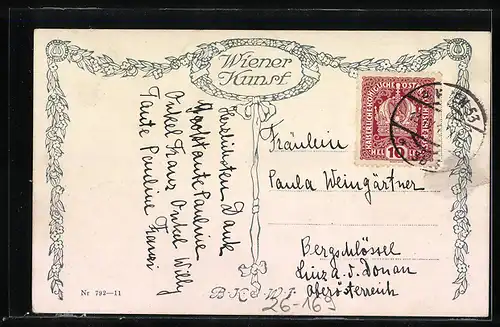 Wiener
Kunst
Herzlichsten Dank
Grosstante Pauline
Onkel Franz Onkel Willy
Tante Pauline Franzi
KAISERLICHE KÖNIGLICHE ÖSTERREICHISCHE POST
HELLER 10 HELLER
WIEN 53
Fräulein
Paula Weingärtner
Bergschlössel
Linz a. d. Donau
Oberösterreich
Nr 792—11
B.K.W.I.
26-169